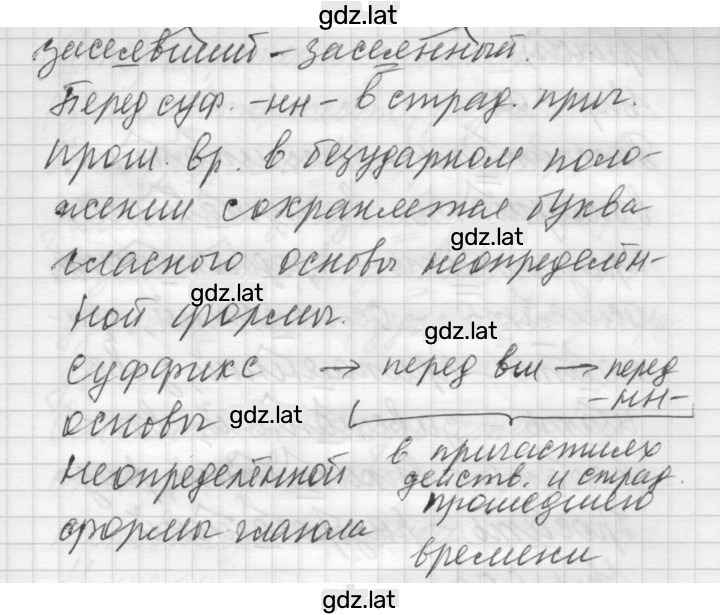 gdz.lat
засеявший – засеянный.
Перед суф. -нн- в страд. прич.
прош. вр. в безударном поло-
жении сохраняется буква
gdz.lat
гласного основы неопределён-
gdz.lat
ной формы.
gdz.lat
суффикс → перед вш → перед
-нн-
основы
gdz.lat
неопределённой
формы глагола
в причастиях
действ. и страд.
прошедшего
времени
gdz.lat